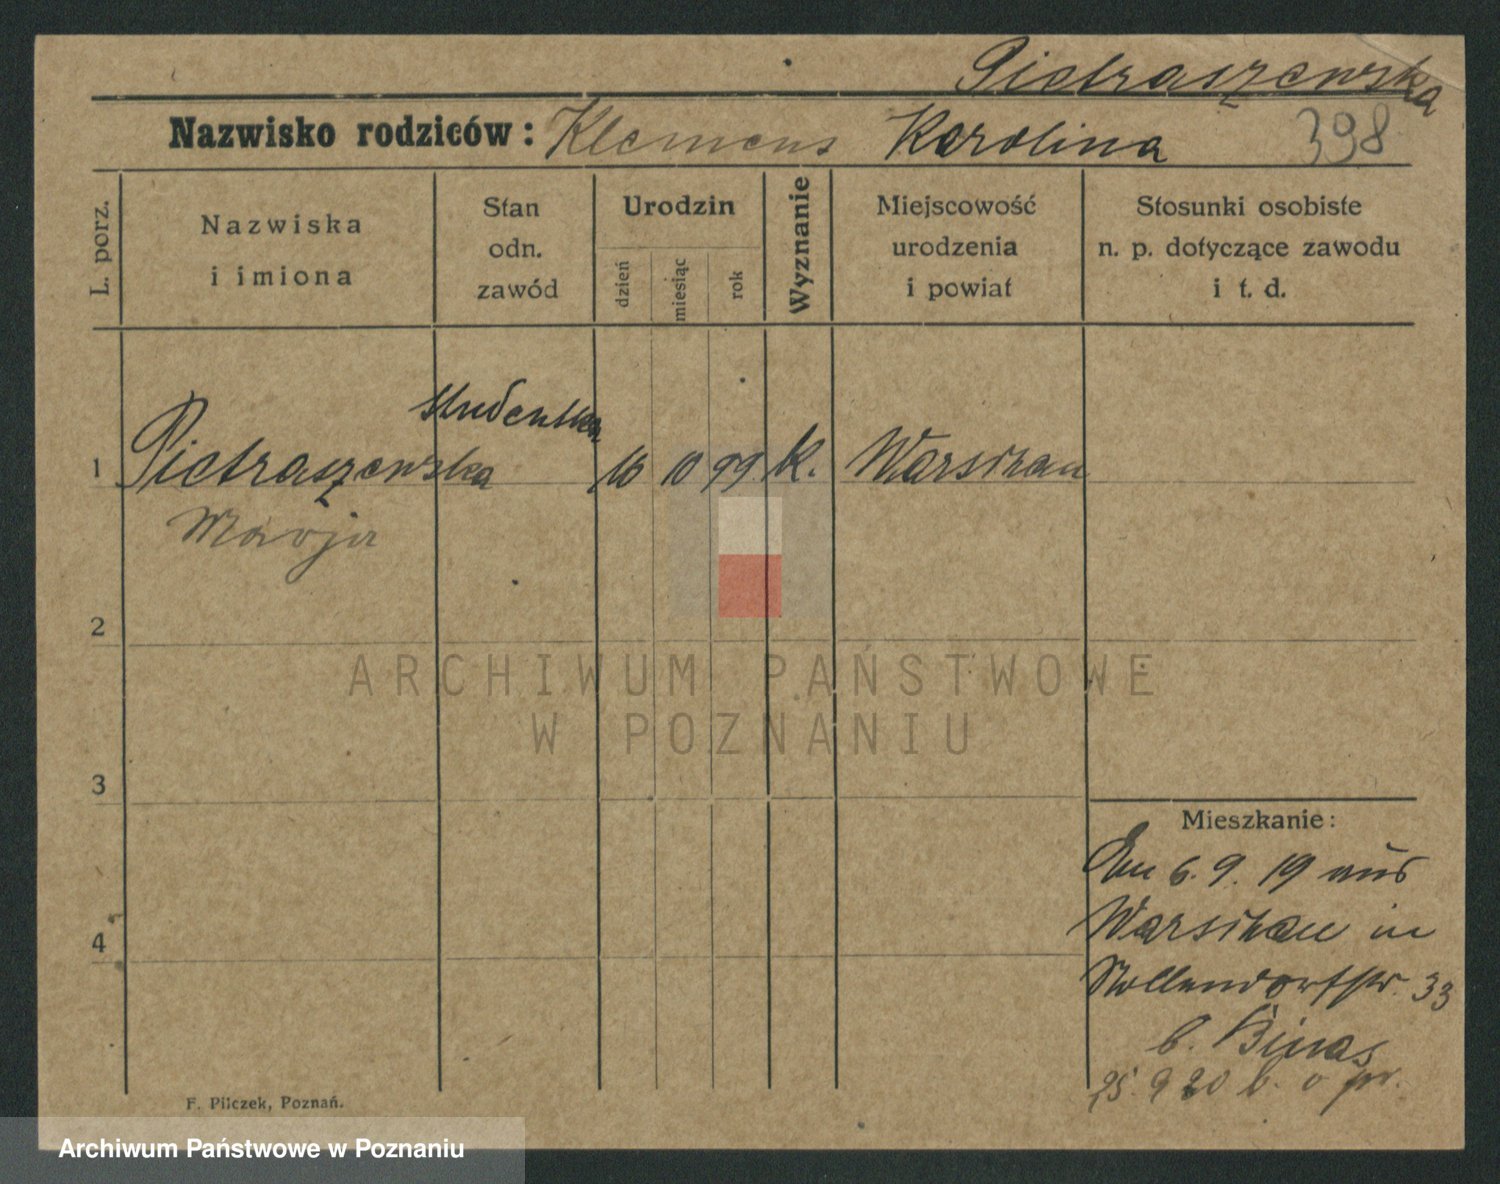 Pietraszewska
Nazwisko rodziców: Klemens Karolina 398
L. porz.
Nazwiska
i imiona
Stan
odn.
zawód
Urodzin
dzień
miesiąc
rok
Wyznanie
Miejscowość
urodzenia
i powiat
Stosunki osobiste
n. p. dotyczące zawodu
i t. d.
studentka
1 Pietraszewska 16 10 99 k. Warschau
Marja
2
ARCHIWUM PAŃSTWOWE
W POZNANIU
3
Mieszkanie:
6. 9. 19 aus
4
Warschau in
Nollendorfstr. 33
b. Binas
25. 9 20 b.
F. Pilczek, Poznań.
Archiwum Państwowe w Poznaniu